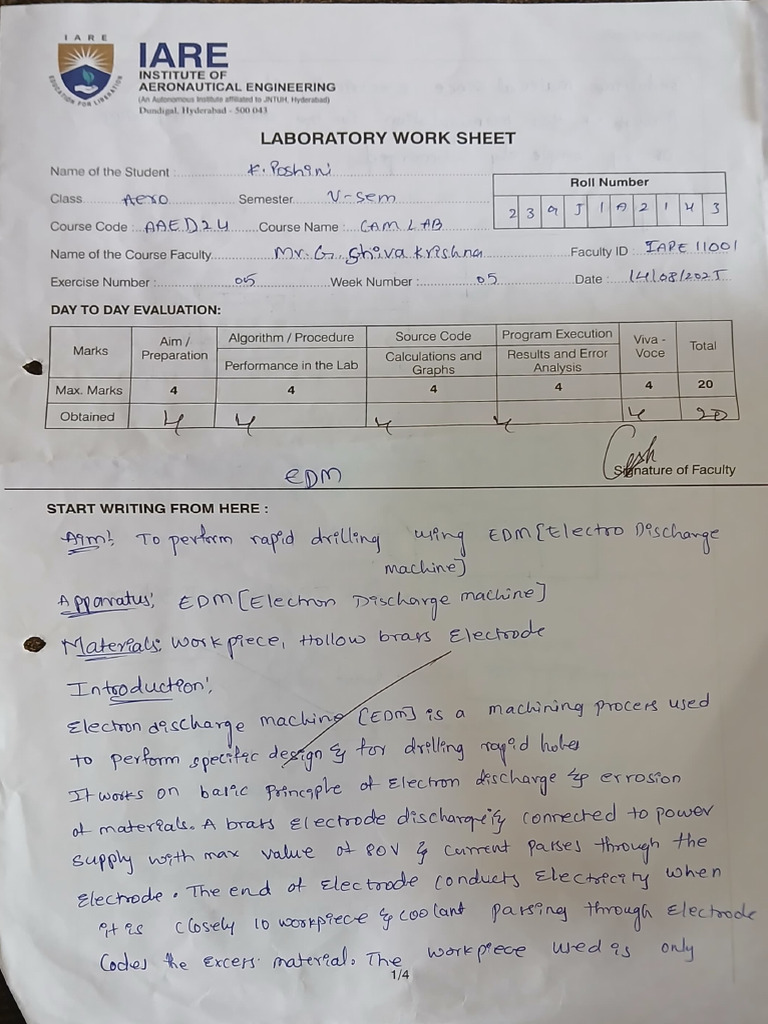 IARE
EDUCATION FOR LIBERATION
IARE
INSTITUTE OF
AERONAUTICAL ENGINEERING
(An Autonomous Institute affiliated to JNTUH, Hyderabad)
Dundigal, Hyderabad - 500 043
LABORATORY WORK SHEET
Name of the Student : K. Poshini
Roll Number
Class Aero Semester V-sem
23951A2143
Course Code : AAED24 Course Name : CAM LAB
Name of the Course Faculty Mr. G. Shiva Krishna Faculty ID : IARE 11001
Exercise Number : 05 Week Number : 05 Date : 14/08/2025
DAY TO DAY EVALUATION:
Marks Aim / Preparation Algorithm / Procedure Source Code Program Execution Viva - Voce Total
Performance in the Lab Calculations and Graphs Results and Error Analysis
Max. Marks 4 4 4 4 4 20
Obtained 4 4 4 4 4 20
Signature of Faculty
EDM
START WRITING FROM HERE :
Aim: To perform rapid drilling using EDM [Electro Discharge
machine]
Apparatus: EDM [Electron Discharge machine]
Materials: Workpiece, Hollow brass Electrode
Introduction:
Electron discharge machine [EDM] is a machining process used
to perform specific design & for drilling rapid holes
It works on basic principle of Electron discharge & errosion
of materials. A brass Electrode discharge is connected to power
supply with max value of 80V & current passes through the
Electrode. The end of Electrode conducts Electricity when
it is closely to workpiece & coolant passing through Electrode
the Excess material. The workpiece used is only
1/4